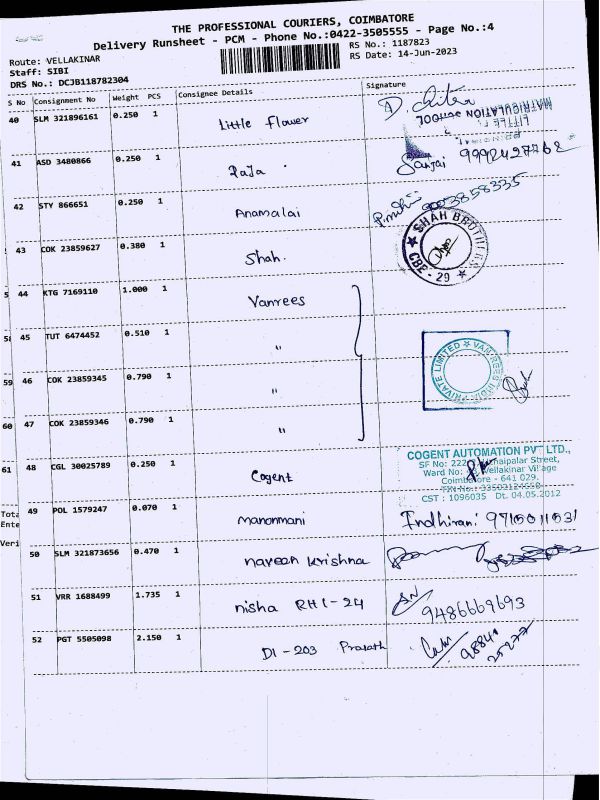 THE PROFESSIONAL COURIERS, COIMBATORE
Delivery Runsheet - PCM - Phone No.:0422-3505555 - Page No.:4
Route: VELLAKINAR
RS No.: 1187823
Staff: SIBI
RS Date: 14-Jun-2023
DRS No.: DCJB118782304
S No Consignment No Weight PCS Consignee Details Signature
40 SLM 321896161 0.250 1 Little Flower
MATRICULATION SCHOOL
41 ASD 3480866 0.250 1 Raja Sanjai
42 STY 866651 0.250 1 Anamalai 9003858335
43 COK 23859627 0.380 1 Shah.
SHAH BROTHERS CBE - 29
5 44 KTG 7169110 1.000 1 Vanrees
45 TUT 6474452 0.510 1 "
59 46 COK 23859345 0.790 1 "
VAN REES INDIA PRIVATE LIMITED
60 47 COK 23859346 0.790 1 "
61 48 CGL 30025789 0.250 1 Cogent
COGENT AUTOMATION PVT LTD.,
Vellakinar Village
Coimbatore - 641 029.
CST : 1096035 Dt. 04.05.2012
49 POL 1579247 0.070 1 manonmani Indhirani
50 SLM 321873656 0.470 1 naveen krishna
51 VRR 1688499 1.735 1 nisha RHI-24 9486669693
52 PGT 5505098 2.150 1 DI-203 Prasath